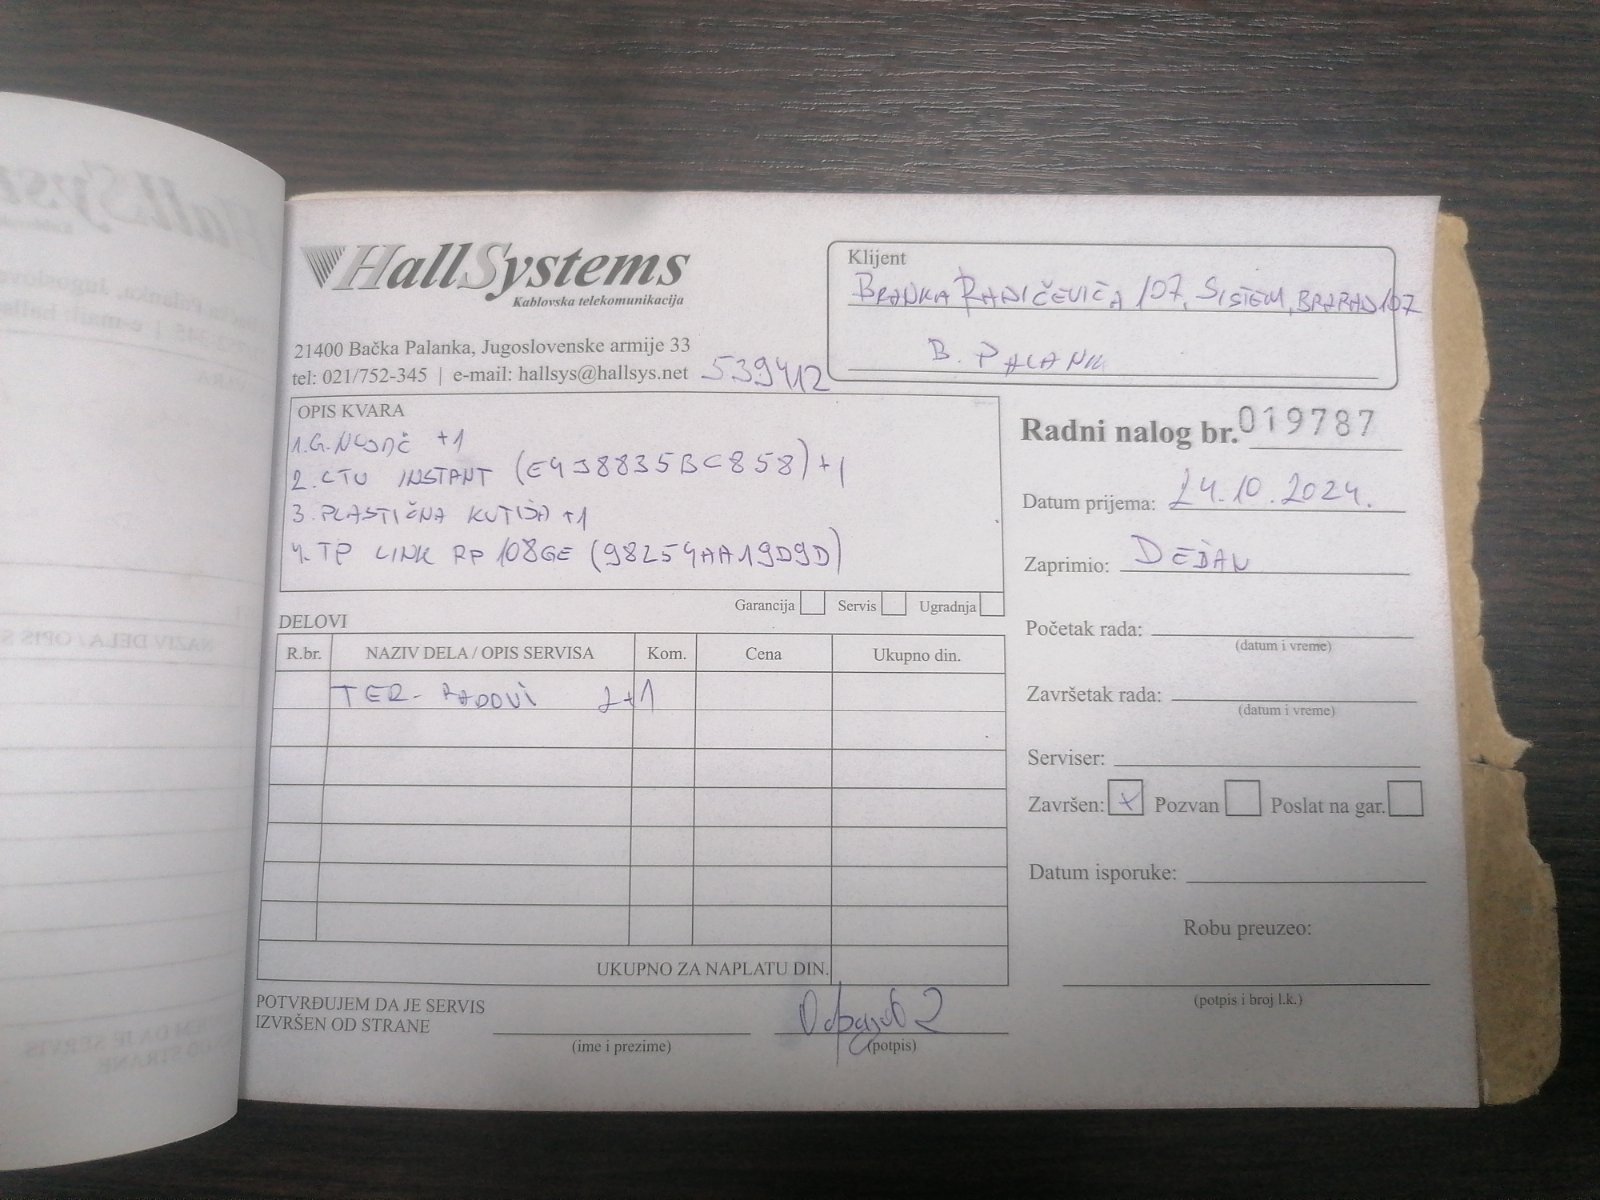 HallSystems
Kablovska telekomunikacija
21400 Bačka Palanka, Jugoslovenske armije 33
tel: 021/752-345 | e-mail: hallsys@hallsys.net 539412
Klijent
BRANKA RADIČEVIĆA 107, SISTEM, BRARAD107
B. PALANK
OPIS KVARA
1. G. +1
2. CTU INSTANT (E4J8835BC858) +1
3. PLASTIČNA KUTIJA +1
4. TP LINK RP 108GE (98254AA19D9D)
Garancija Servis Ugradnja
DELOVI
R.br. NAZIV DELA / OPIS SERVISA Kom. Cena Ukupno din.
TER- RADOVI 2+1
UKUPNO ZA NAPLATU DIN.
POTVRĐUJEM DA JE SERVIS
IZVRŠEN OD STRANE
(ime i prezime) (potpis)
Radni nalog br. 019787
Datum prijema: 24.10.2024.
Zaprimio: DEJAN
Početak rada:
(datum i vreme)
Završetak rada:
(datum i vreme)
Serviser:
Završen: x Pozvan Poslat na gar.
Datum isporuke:
Robu preuzeo:
(potpis i broj l.k.)